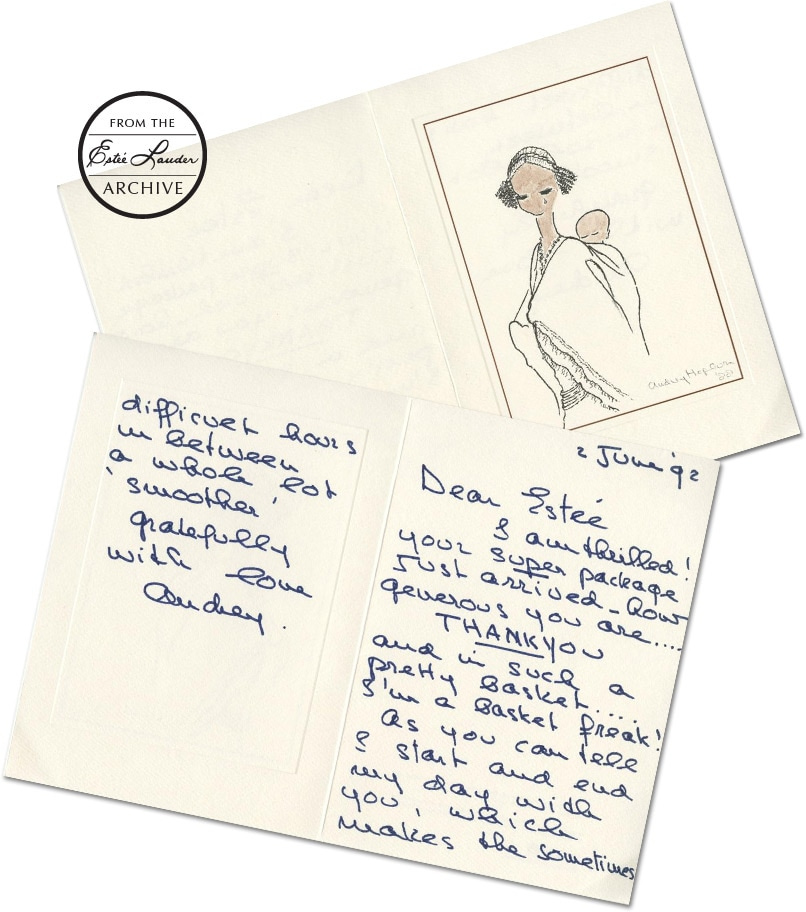 FROM THE
Estée Lauder
ARCHIVE
Audrey Hepburn
2 June '92
Dear Estée
I am thrilled!
your super package
Just arrived - how
generous you are....
THANK YOU
and in such a
pretty basket.....
I'm a basket freak!
As you can tell
I start and end
my day with
you, which
makes the sometimes
difficult hours
in between
a whole lot
'smoother'
gratefully
with love
Audrey.